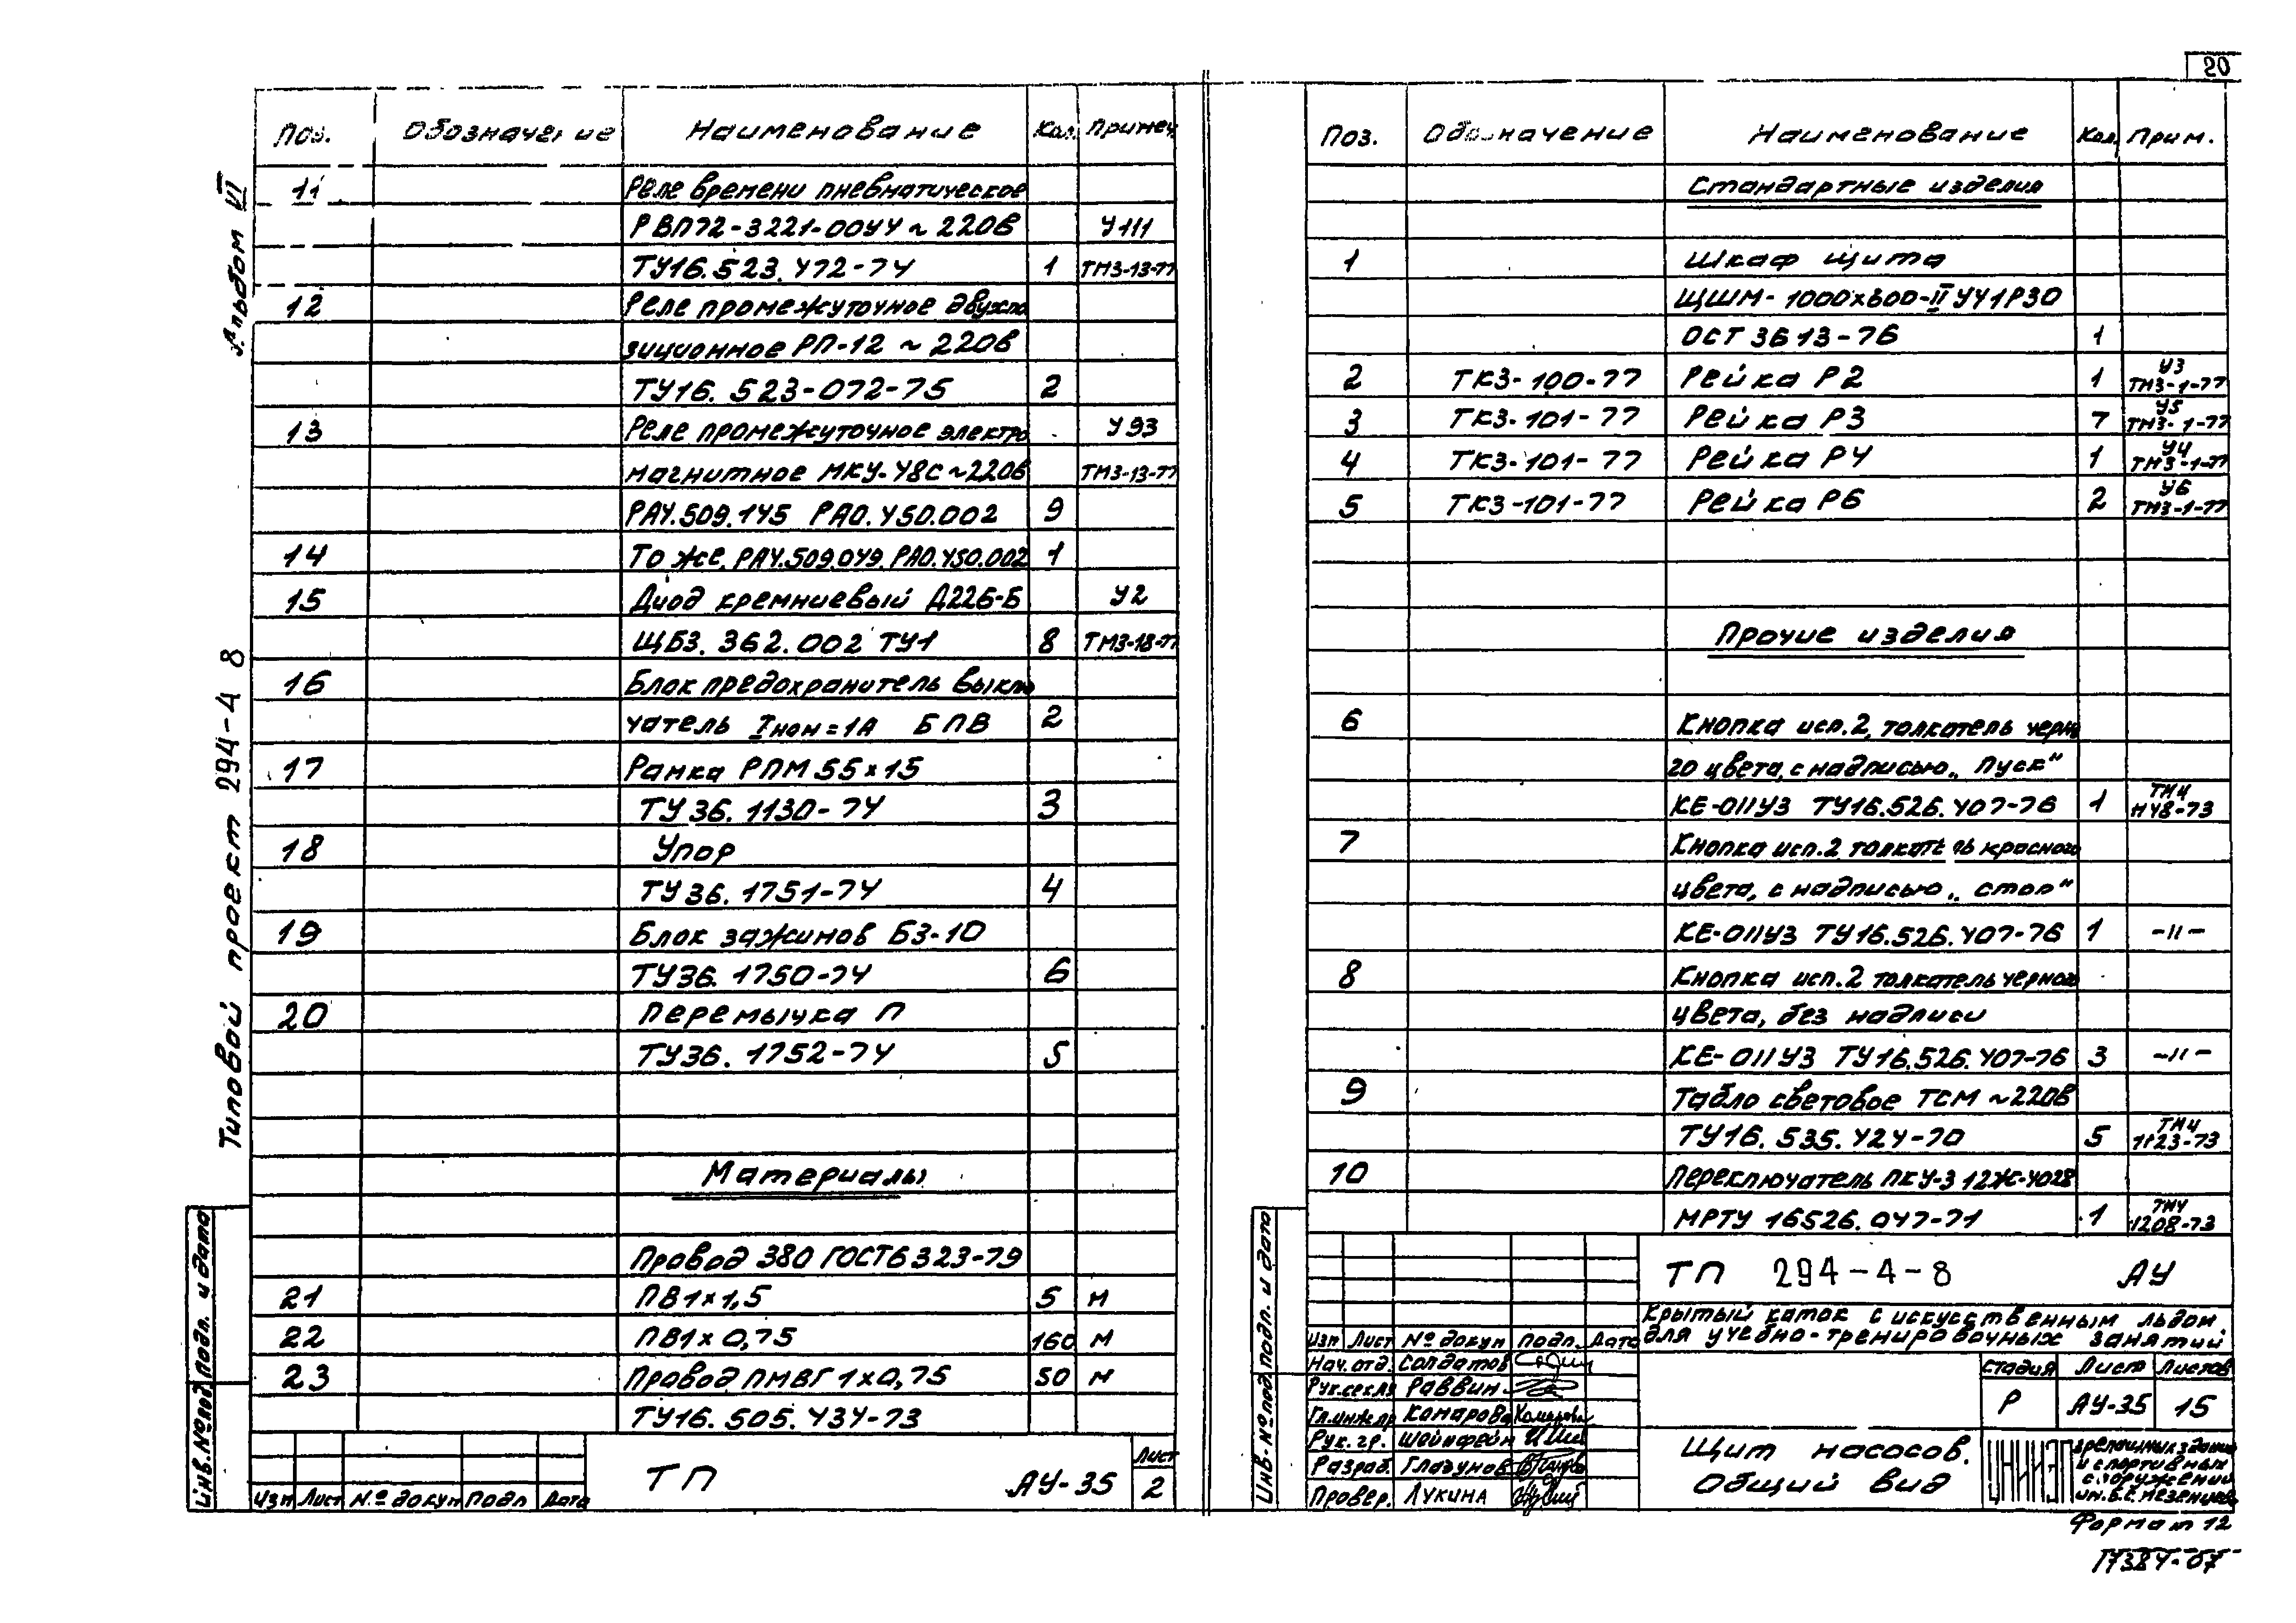 20
Альбом VI
Типовой проект 294-4 8
Поз. Обозначение Наименование Кол. Примеч.
11 Реле времени пневматическое
РВП72-3221-00У4 ~ 220В У111
ТУ16.523.472-74 1 ТМ3-13-77
12 Реле промежуточное двухпо
зиционное РП-12 ~ 220В
ТУ16.523-072-75 2
13 Реле промежуточное электро У93
магнитное МКУ-48С ~220В ТМ3-13-77
РА4.509.145 РА0.450.002 9
14 То же РА4.509.049. РА0.450.002 1
15 Диод кремниевый Д226-Б У2
ЩБ3.362.002 ТУ1 8 ТМ3-18-77
16 Блок предохранитель выклю
чатель Iном=1А БПВ 2
17 Рамка РПМ 55×15
ТУ36.1130-74 3
18 Упор
ТУ36.1751-74 4
19 Блок зажимов БЗ-10
ТУ36.1750-74 6
20 Перемычка П
ТУ36.1752-74 5
Материалы
Провод 380 ГОСТ6323-79
21 ПВ1×1,5 5 м
22 ПВ1×0,75 160 м
23 Провод ПМВГ 1×0,75 50 м
ТУ16.505.434-73
Инв.№ под Подп. и дата
Изм Лист № докум Подп Дата
ТП АУ-35 Лист
2
Поз. Обозначение Наименование Кол. Прим.
Стандартные изделия
1 Шкаф щита
ЩШМ-1000×600-II УЧ1Р30
ОСТ 3613-76 1
2 ТК3-100-77 Рейка Р2 1 У3 ТМ3-1-77
3 ТК3-101-77 Рейка Р3 7 У5 ТМ3-1-77
4 ТК3-101-77 Рейка Р4 1 У4 ТМ3-1-77
5 ТК3-101-77 Рейка Р6 2 У6 ТМ3-1-77
Прочие изделия
6 Кнопка исп.2, толкатель черно
го цвета, с надписью „Пуск“
КЕ-011У3 ТУ16.526.407-76 1 ТМ4
7 Кнопка исп.2 толкатель красного
цвета, с надписью „стоп“
КЕ-011У3 ТУ16.526.407-76 1 -11-
8 Кнопка исп.2 толкатель черного
цвета, без надписи
КЕ-011У3 ТУ16.526.407-76 3 -11-
9 Табло световое ТСМ ~220В
ТУ16.535.424-70 5 ТМ4 1123-73
10 Переключатель ПКУ-3 12Ж-4028
МРТУ 16526.047-71 1 ТМ4 1208-73
Инв.№ под Подп. и дата
ТП 294-4-8 АУ
Крытый каток с искусственным льдом
для учебно-тренировочных занятий
Изм Лист № докум Подп. Дата
Нач.отд. Солдатов
Рук.сект. Раввин
Гл.инж.пр Комарова
Рук.гр. Шейнфейн
Разраб. Глазунов
Провер. Лукина
Стадия Лист Листов
Р АУ-35 15
Щит насосов.
Общий вид
зрелищных зданий
и спортивных
сооружений
им. Б.С. Мезенцева
Формат 12
17384-07